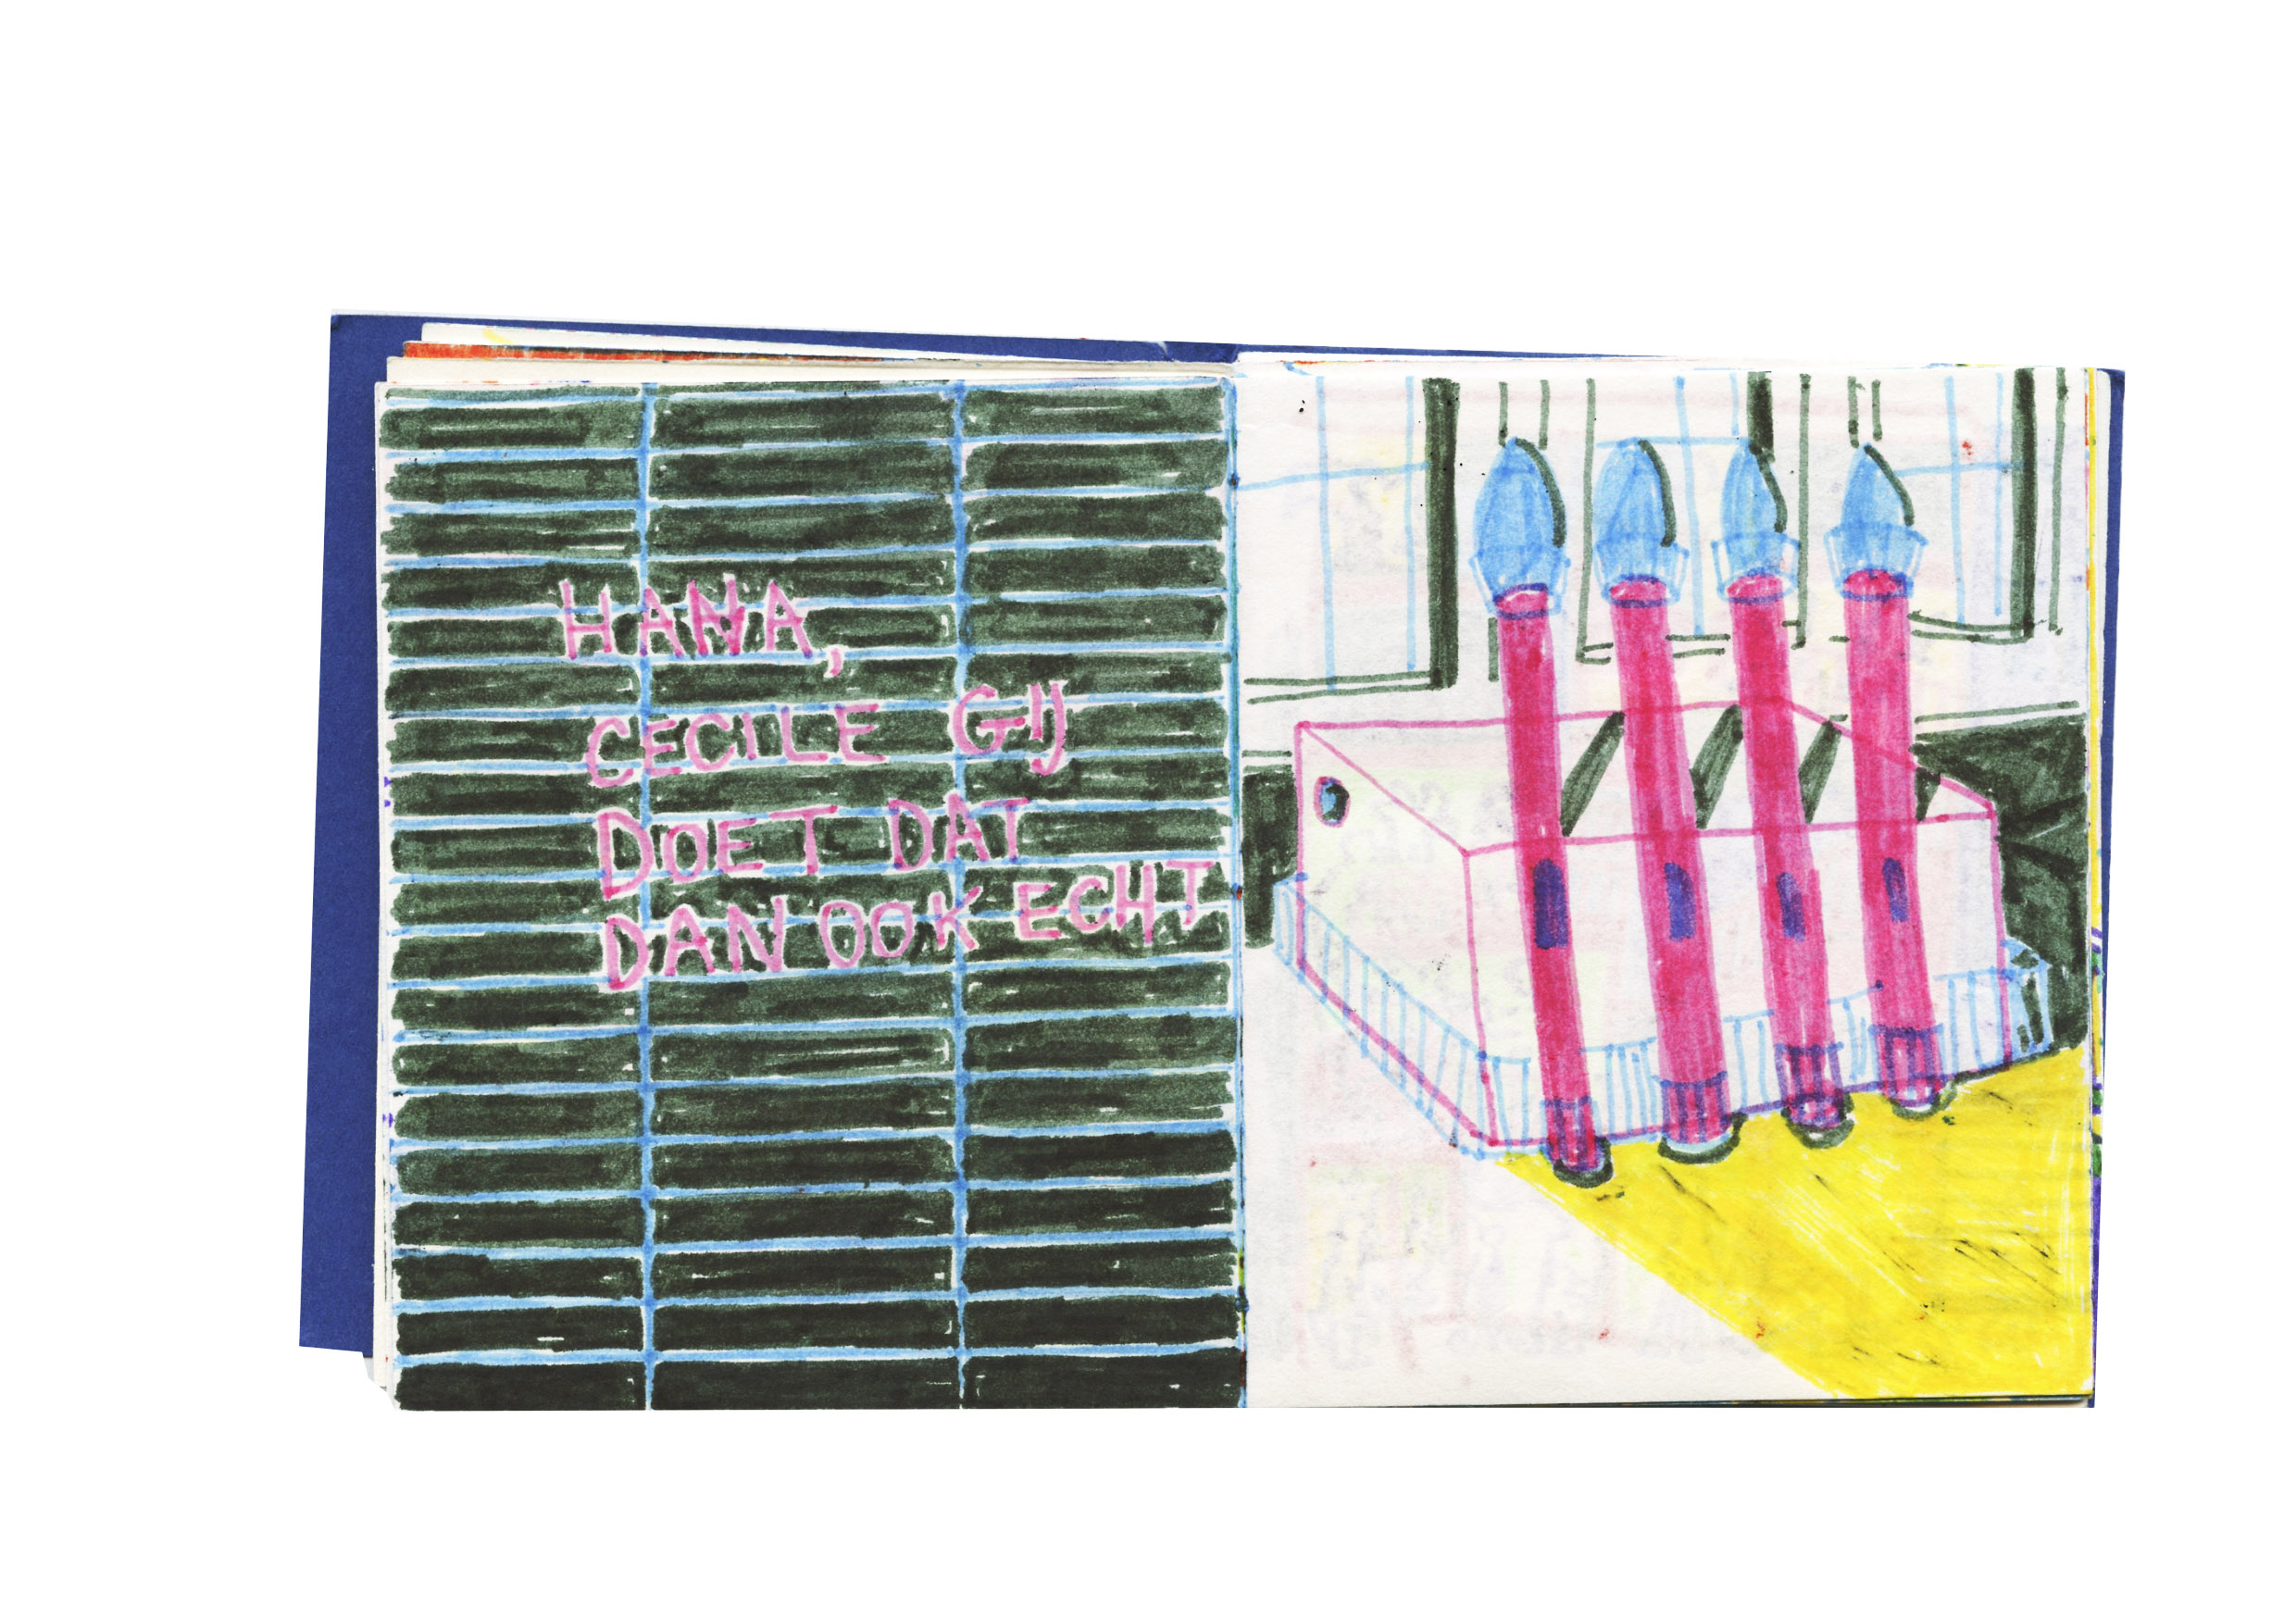 HANA,
CECILE GIJ
DOET DAT
DAN OOK ECHT